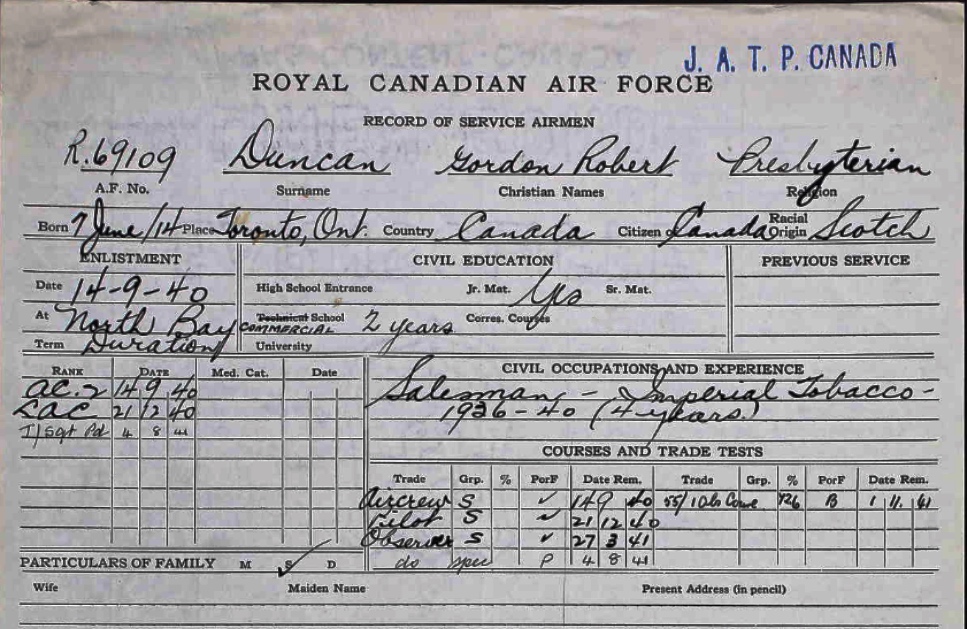 J. A. T. P. CANADA
ROYAL CANADIAN AIR FORCE
RECORD OF SERVICE AIRMEN
R.69109 Duncan Gordon Robert Presbyterian
A.F. No. Surname Christian Names Religion
Born 7 June/14 Place Toronto, Ont. Country Canada Citizen of Canada Racial Origin Scotch
ENLISTMENT CIVIL EDUCATION PREVIOUS SERVICE
Date 14-9-40 High School Entrance Jr. Mat. Yes Sr. Mat.
At North Bay Technical School COMMERCIAL 2 years Corres. Courses
Term Duration University
RANK DATE Med. Cat. Date CIVIL OCCUPATIONS AND EXPERIENCE
AC.2 14 9 40 Salesman - Imperial Tobacco -
LAC 21 12 40 1936-40 (4 years)
T/Sgt Pd 4 8 41
COURSES AND TRADE TESTS
Trade Grp. % P or F Date Rem. Trade Grp. % P or F Date Rem.
Aircrew S ✓ 14 9 40 55/1 Obs 1 11. 41
Pilot S ✓ 21 12 40
Observer S ✓ 27 3 41
do spec P 4 8 41
PARTICULARS OF FAMILY M S ✓ D
Wife Maiden Name Present Address (in pencil)